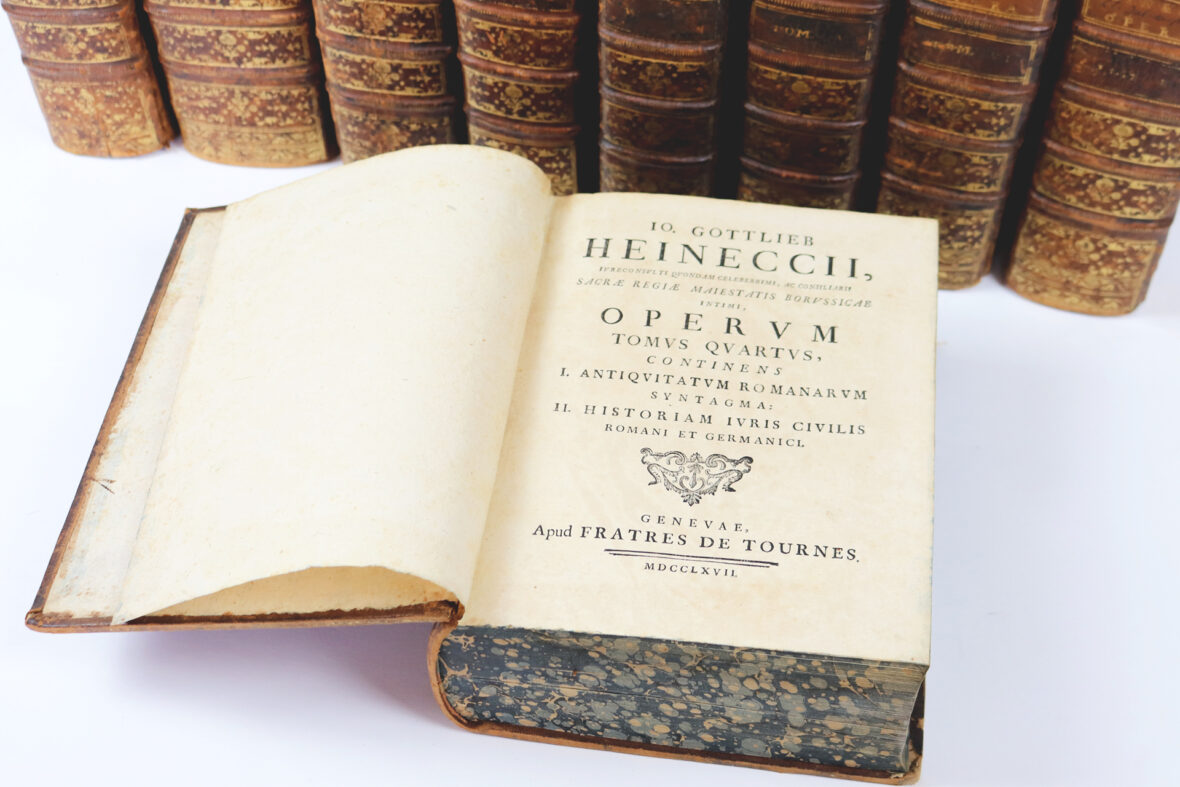 TOM.
TOM.
OPER
IO. GOTTLIEB
HEINECCII,
IVRECONSVLTI QVONDAM CELEBERRIMI, AC CONSILIARII
SACRÆ REGIÆ MAIESTATIS BORVSSICAE
INTIMI,
OPERVM
TOMVS QVARTVS,
CONTINENS
I. ANTIQVITATVM ROMANARVM
SYNTAGMA:
II. HISTORIAM IVRIS CIVILIS
ROMANI ET GERMANICI.
GENEVAE,
Apud FRATRES DE TOURNES.
MDCCLXVII.